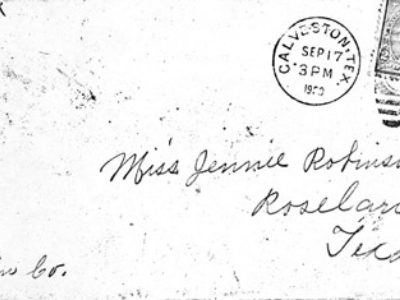 GALVESTON, TEX.
SEP 17
3 PM
1900
Miss Jennie Robins
Roselan
Tex
Co.